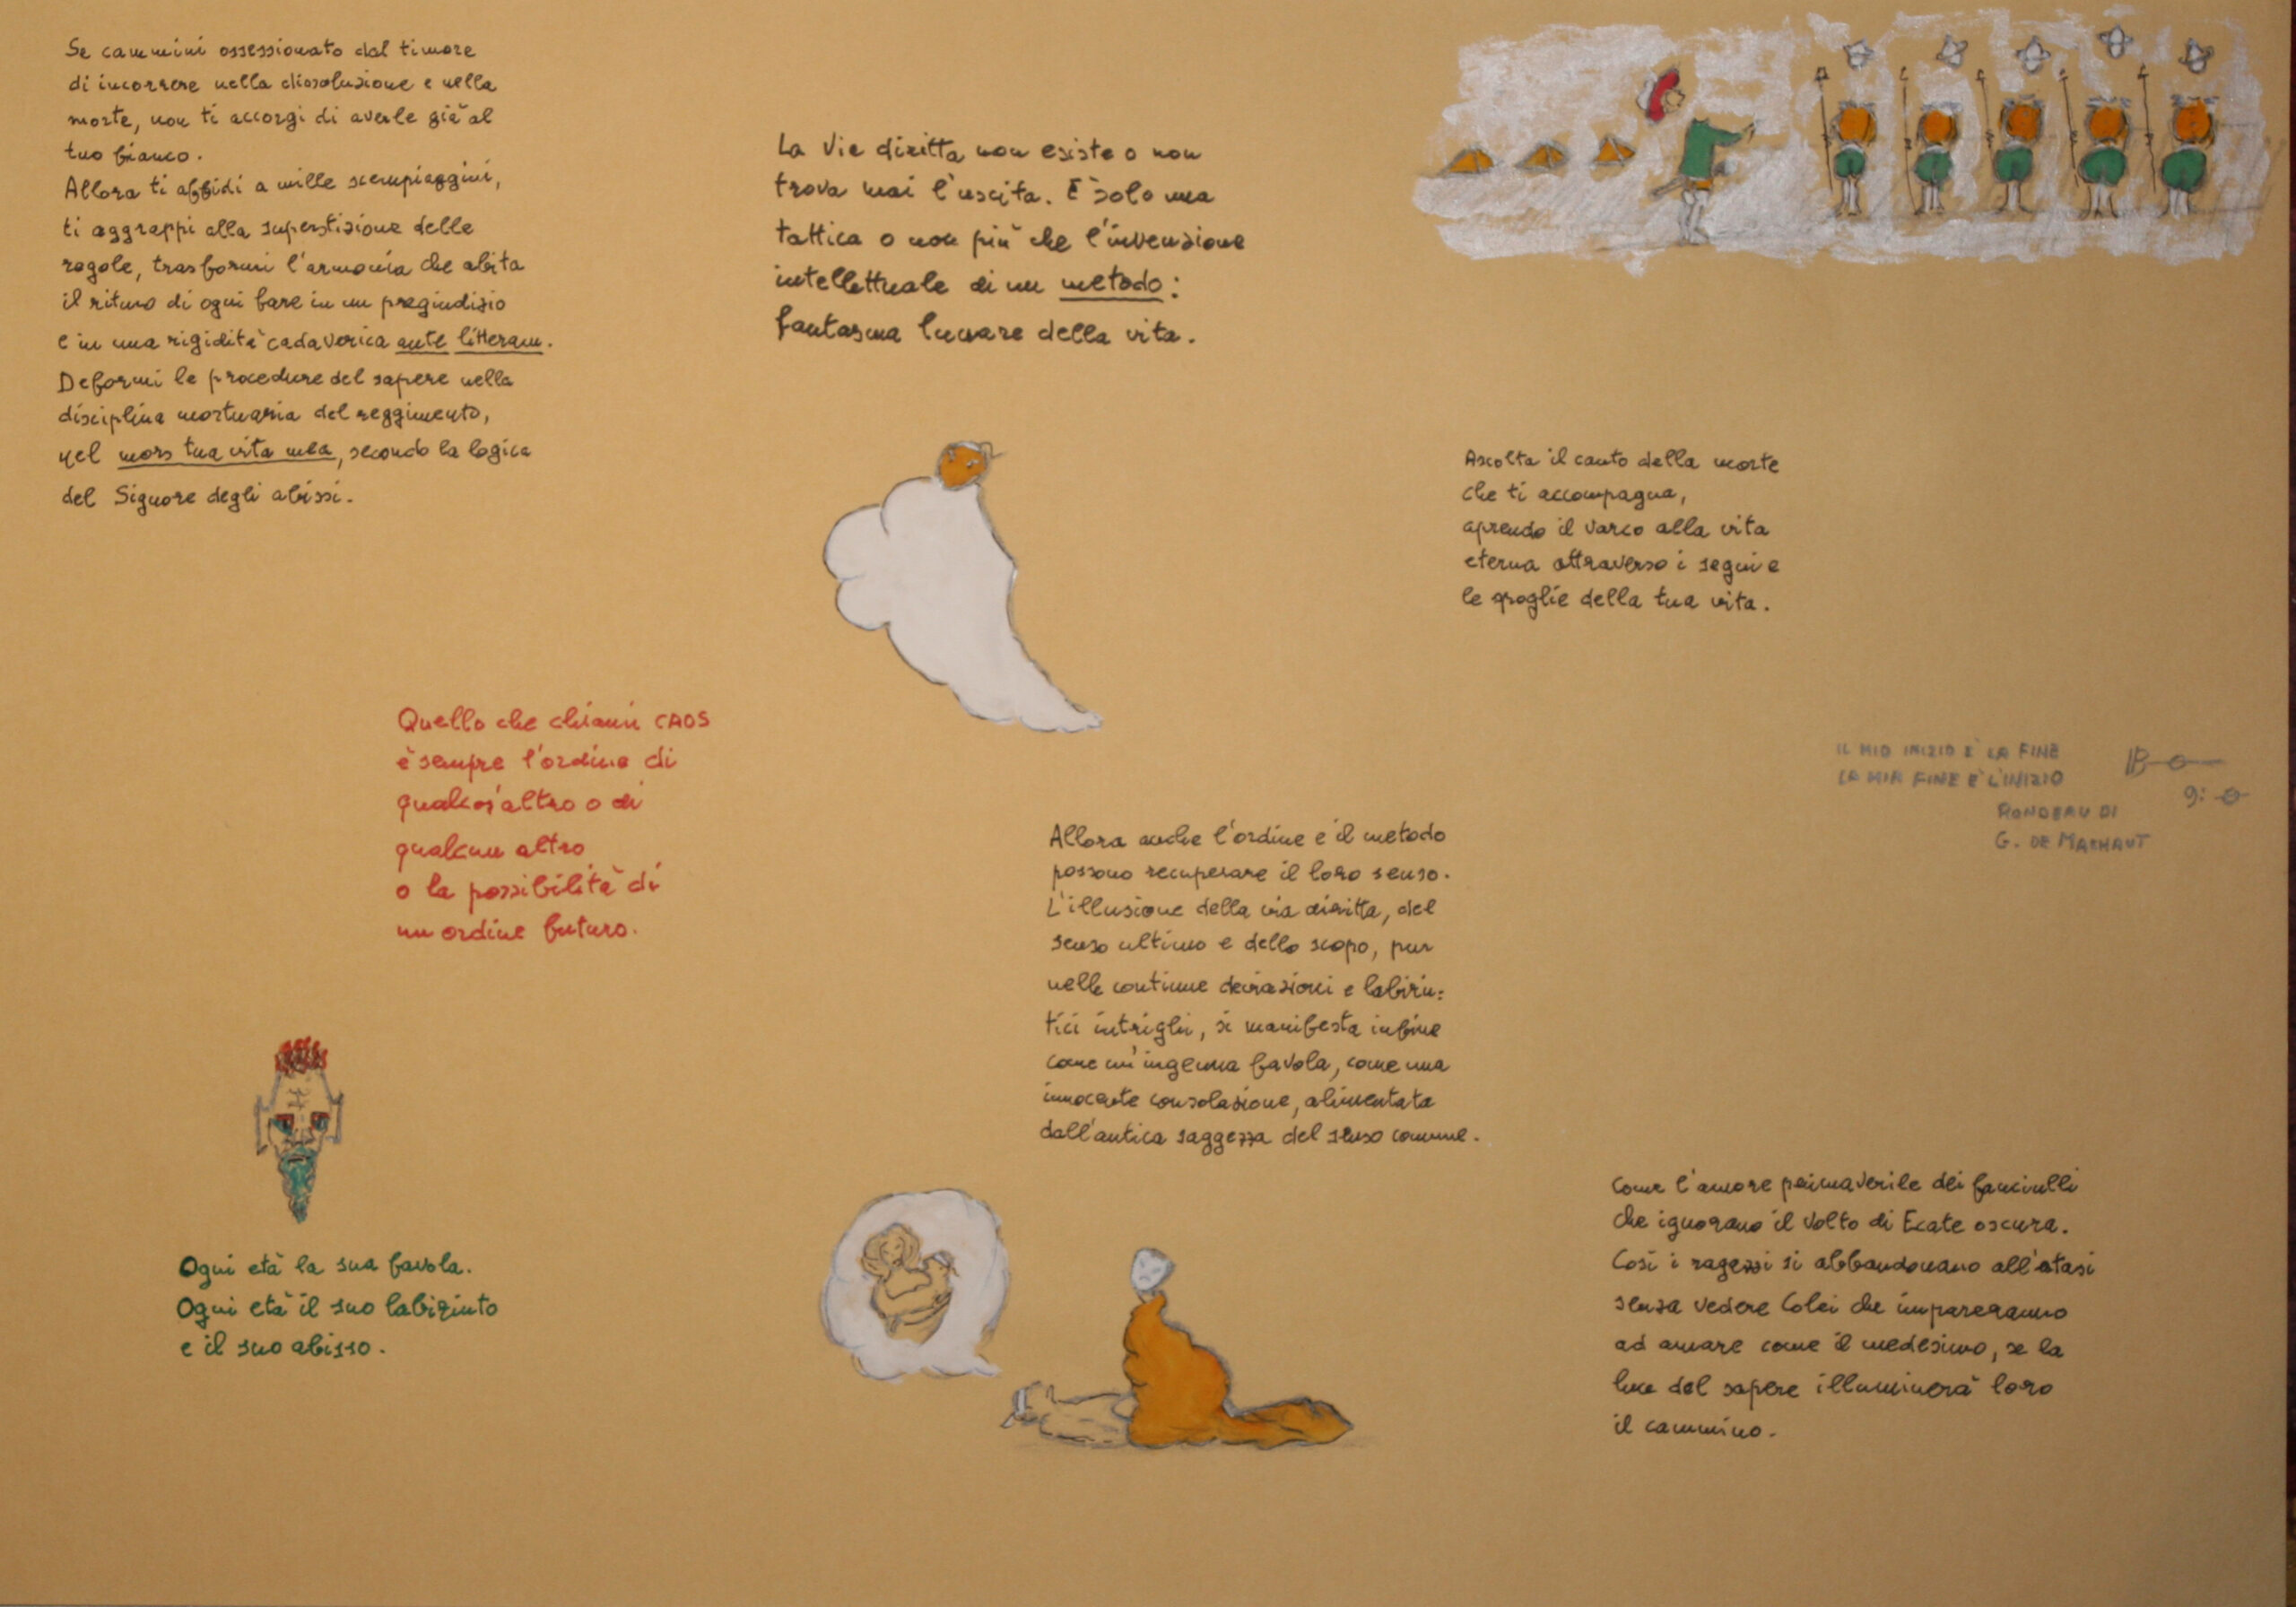 Se cammini ossessionato dal timore
di incorrere nella dissoluzione e nella
morte, non ti accorgi di averle già al
tuo fianco.
Allora ti affidi a mille scempiaggini,
ti aggrappi alla superstizione delle
regole, trasformi l'armonia che abita
il ritmo di ogni fare in un pregiudizio
e in una rigidità cadaverica ante litteram.
Deformi le procedure del sapere nella
disciplina mortuaria del reggimento,
nel mors tua vita mea, secondo la logica
del Signore degli abissi.
La Via diritta non esiste o non
trova mai l'uscita. È solo una
tattica o non più che l'invenzione
intellettuale di un metodo:
fantasma lunare della vita.
Ascolta il canto della morte
che ti accompagna,
aprendo il varco alla vita
eterna attraverso i segni e
le spoglie della tua vita.
Quello che chiami CAOS
è sempre l'ordine di
qualcos'altro o di
qualcun altro
o la possibilità di
un ordine futuro.
IL MIO INIZIO E' LA FINE
LA MIA FINE E' L'INIZIO
RONDEAU DI
G. DE MACHAUT
Allora anche l'ordine e il metodo
possono recuperare il loro senso.
L'illusione della via diritta, del
senso ultimo e dello scopo, pur
nelle continue deviazioni e labirin:
tici intrighi, si manifesta infine
come un'ingenua favola, come una
innocente consolazione, alimentata
dall'antica saggezza del senso comune.
Ogni età la sua favola.
Ogni età il suo labirinto
e il suo abisso.
Come l'amore primaverile dei fanciulli
che ignorano il volto di Ecate oscura.
Così i ragazzi si abbandonano all'estasi
senza vedere Colei che impareranno
ad amare come il medesimo, se la
luce del sapere illuminerà loro
il cammino.